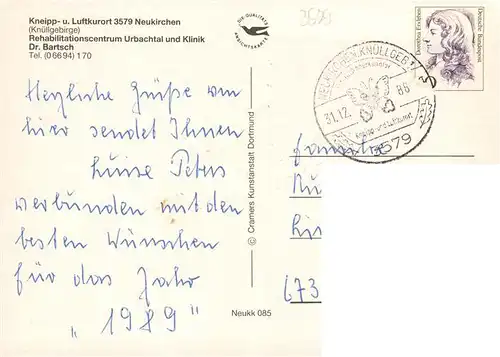 Kneipp- u. Luftkurort 3579 Neukirchen
(Knüllgebirge)
Rehabilitationscentrum Urbachtal und Klinik
Dr. Bartsch
Tel. (06694) 170
DIE QUALITÄTS
ANSICHTSKARTE
3579
Deutsche Bundespost
Dorothea Erxleben
NEUKIRCHEN, KNÜLLGEB 1
31.12. 88
3579
Herzliche Grüße von
hier sendet Ihnen
Luise Peters
verbunden mit den
besten Wünschen
für das Jahr
„1989"
© Cramers Kunstanstalt Dortmund
Neukk 085
Familie
673